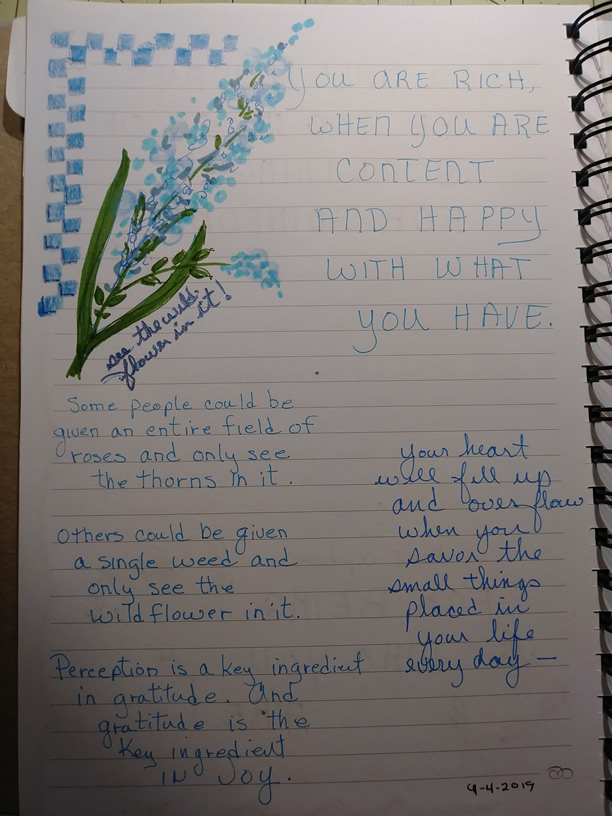 YOU ARE RICH,
WHEN YOU ARE
CONTENT
AND HAPPY
WITH WHAT
YOU HAVE.
see the wild
flower in it!
Some people could be
given an entire field of
roses and only see
the thorns in it.
Others could be given
a single weed and
only see the
wildflower in it.
Perception is a key ingredient
in gratitude. And
gratitude is the
key ingredient
IN JOY.
your heart
will fill up
and overflow
when you
savor the
small things
placed in
your life
every day —
9-4-2019